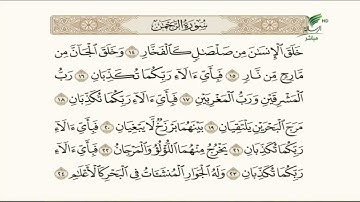 سُورَةُ الرَّحْمَٰن
خَلَقَ الْإِنسَٰنَ مِن صَلْصَٰلٍ كَالْفَخَّارِ ١٤ وَخَلَقَ الْجَآنَّ مِن
مَّارِجٍ مِّن نَّارٍ ١٥ فَبِأَيِّ ءَالَآءِ رَبِّكُمَا تُكَذِّبَانِ ١٦ رَبُّ
الْمَشْرِقَيْنِ وَرَبُّ الْمَغْرِبَيْنِ ١٧ فَبِأَيِّ ءَالَآءِ رَبِّكُمَا تُكَذِّبَانِ ١٨
مَرَجَ الْبَحْرَيْنِ يَلْتَقِيَانِ ١٩ بَيْنَهُمَا بَرْزَخٌ لَّا يَبْغِيَانِ ٢٠ فَبِأَيِّ ءَالَآءِ
رَبِّكُمَا تُكَذِّبَانِ ٢١ يَخْرُجُ مِنْهُمَا اللُّؤْلُؤُ وَالْمَرْجَانُ ٢٢ فَبِأَيِّ ءَالَآءِ
رَبِّكُمَا تُكَذِّبَانِ ٢٣ وَلَهُ الْجَوَارِ الْمُنشَـَٔاتُ فِي الْبَحْرِ كَالْأَعْلَٰمِ ٢٤
HD
مباشر